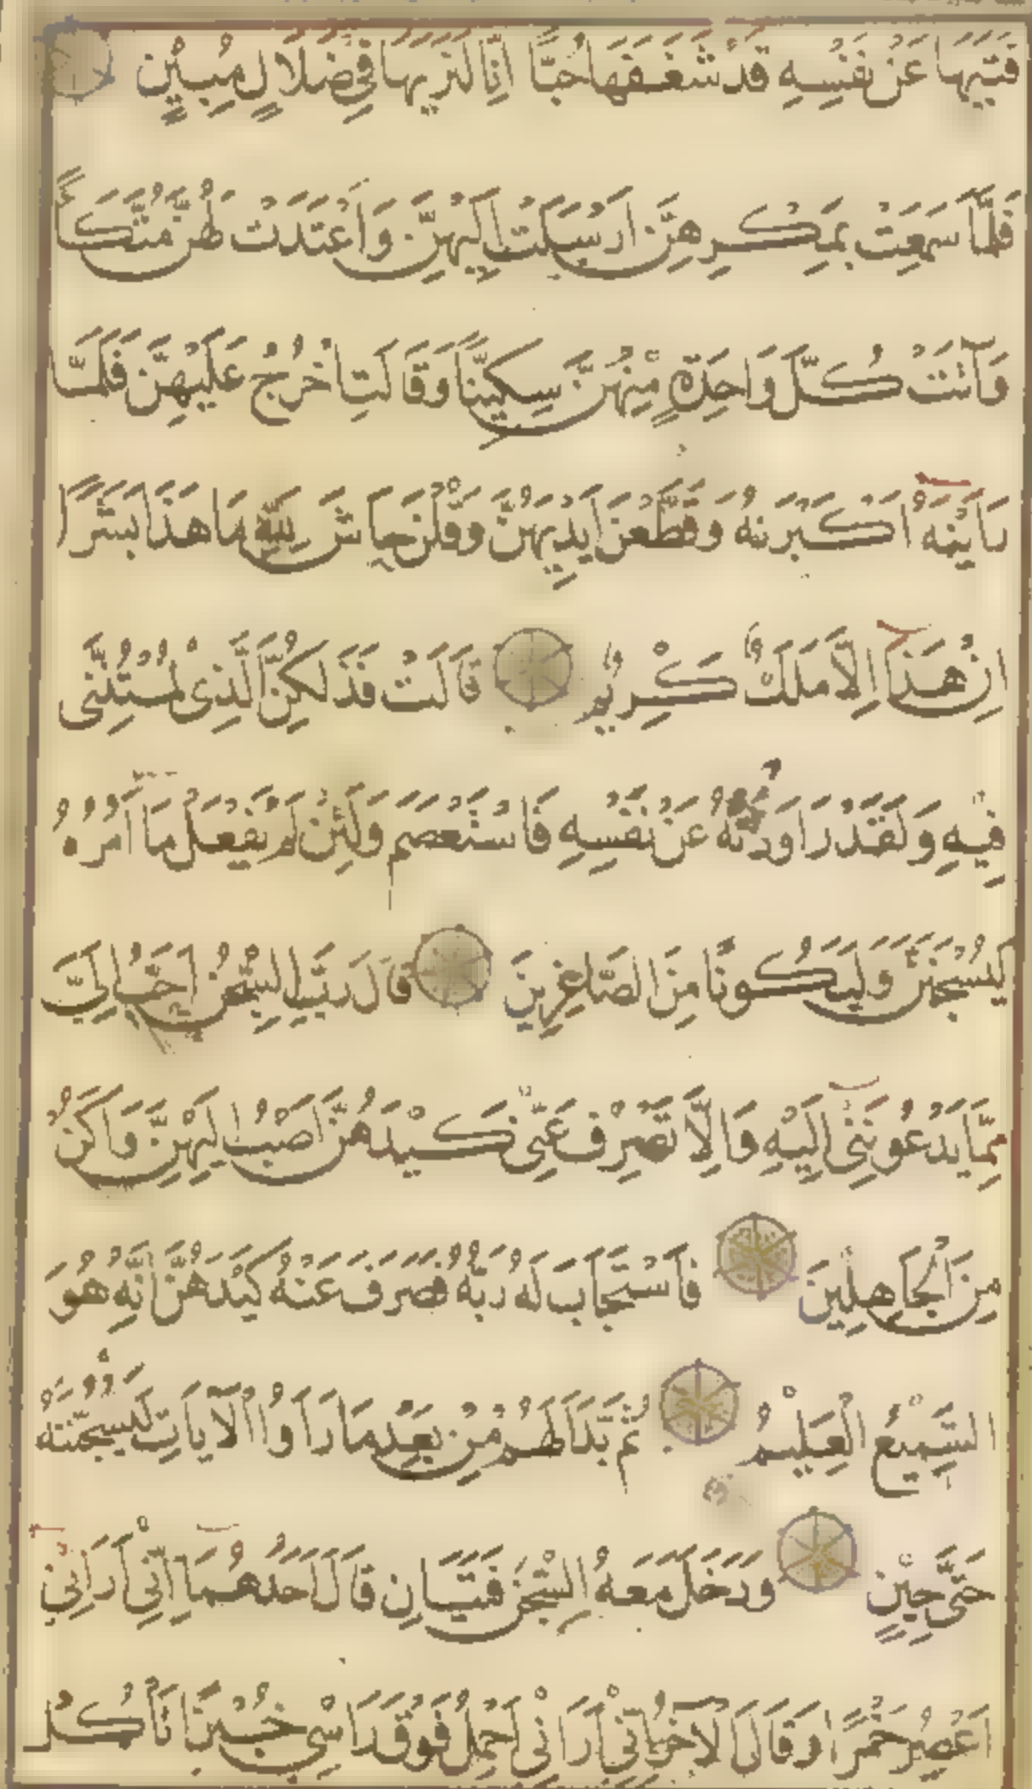 فَتٰيهَا عَنْ نَفْسِهِ قَدْ شَغَفَهَا حُبًّا اِنَّا لَنَرٰيهَا فِي ضَلَالٍ مُبِيْنٍ
فَلَمَّا سَمِعَتْ بِمَكْرِهِنَّ اَرْسَلَتْ اِلَيْهِنَّ وَاَعْتَدَتْ لَهُنَّ مُتَّكَأً
وَآتَتْ كُلَّ وَاحِدَةٍ مِنْهُنَّ سِكِّينًا وَقَالَتِ اخْرُجْ عَلَيْهِنَّ فَلَمَّا
رَاَيْنَهُ اَكْبَرْنَهُ وَقَطَّعْنَ اَيْدِيَهُنَّ وَقُلْنَ حَاشَ لِلّٰهِ مَا هَذَا بَشَرًا
اِنْ هَذَا اِلَّا مَلَكٌ كَرِيمٌ قَالَتْ فَذَلِكُنَّ الَّذِي لُمْتُنَّنِي
فِيْهِ وَلَقَدْ رَاوَدْتُهُ عَنْ نَفْسِهِ فَاسْتَعْصَمَ وَلَئِنْ لَمْ يَفْعَلْ مَا اٰمُرُهُ
لَيُسْجَنَنَّ وَلَيَكُونًا مِنَ الصَّاغِرِينَ قَالَ رَبِّ السِّجْنُ اَحَبُّ اِلَيَّ
مِمَّا يَدْعُونَنِي اِلَيْهِ وَاِلَّا تَصْرِفْ عَنِّي كَيْدَهُنَّ اَصْبُ اِلَيْهِنَّ وَاَكُنْ
مِنَ الْجَاهِلِينَ فَاسْتَجَابَ لَهُ رَبُّهُ فَصَرَفَ عَنْهُ كَيْدَهُنَّ اِنَّهُ هُوَ
السَّمِيْعُ الْعَلِيْمُ ثُمَّ بَدَا لَهُمْ مِنْ بَعْدِ مَا رَاَوُا الْآيَاتِ لَيَسْجُنُنَّهُ
حَتَّى حِيْنٍ وَدَخَلَ مَعَهُ السِّجْنَ فَتَيَانِ قَالَ اَحَدُهُمَا اِنِّي اَرَانِيْ
اَعْصِرُ خَمْرًا وَقَالَ الْآخَرُ اِنِّي اَرَانِيْ اَحْمِلُ فَوْقَ رَاْسِي خُبْزًا تَاْكُلُ